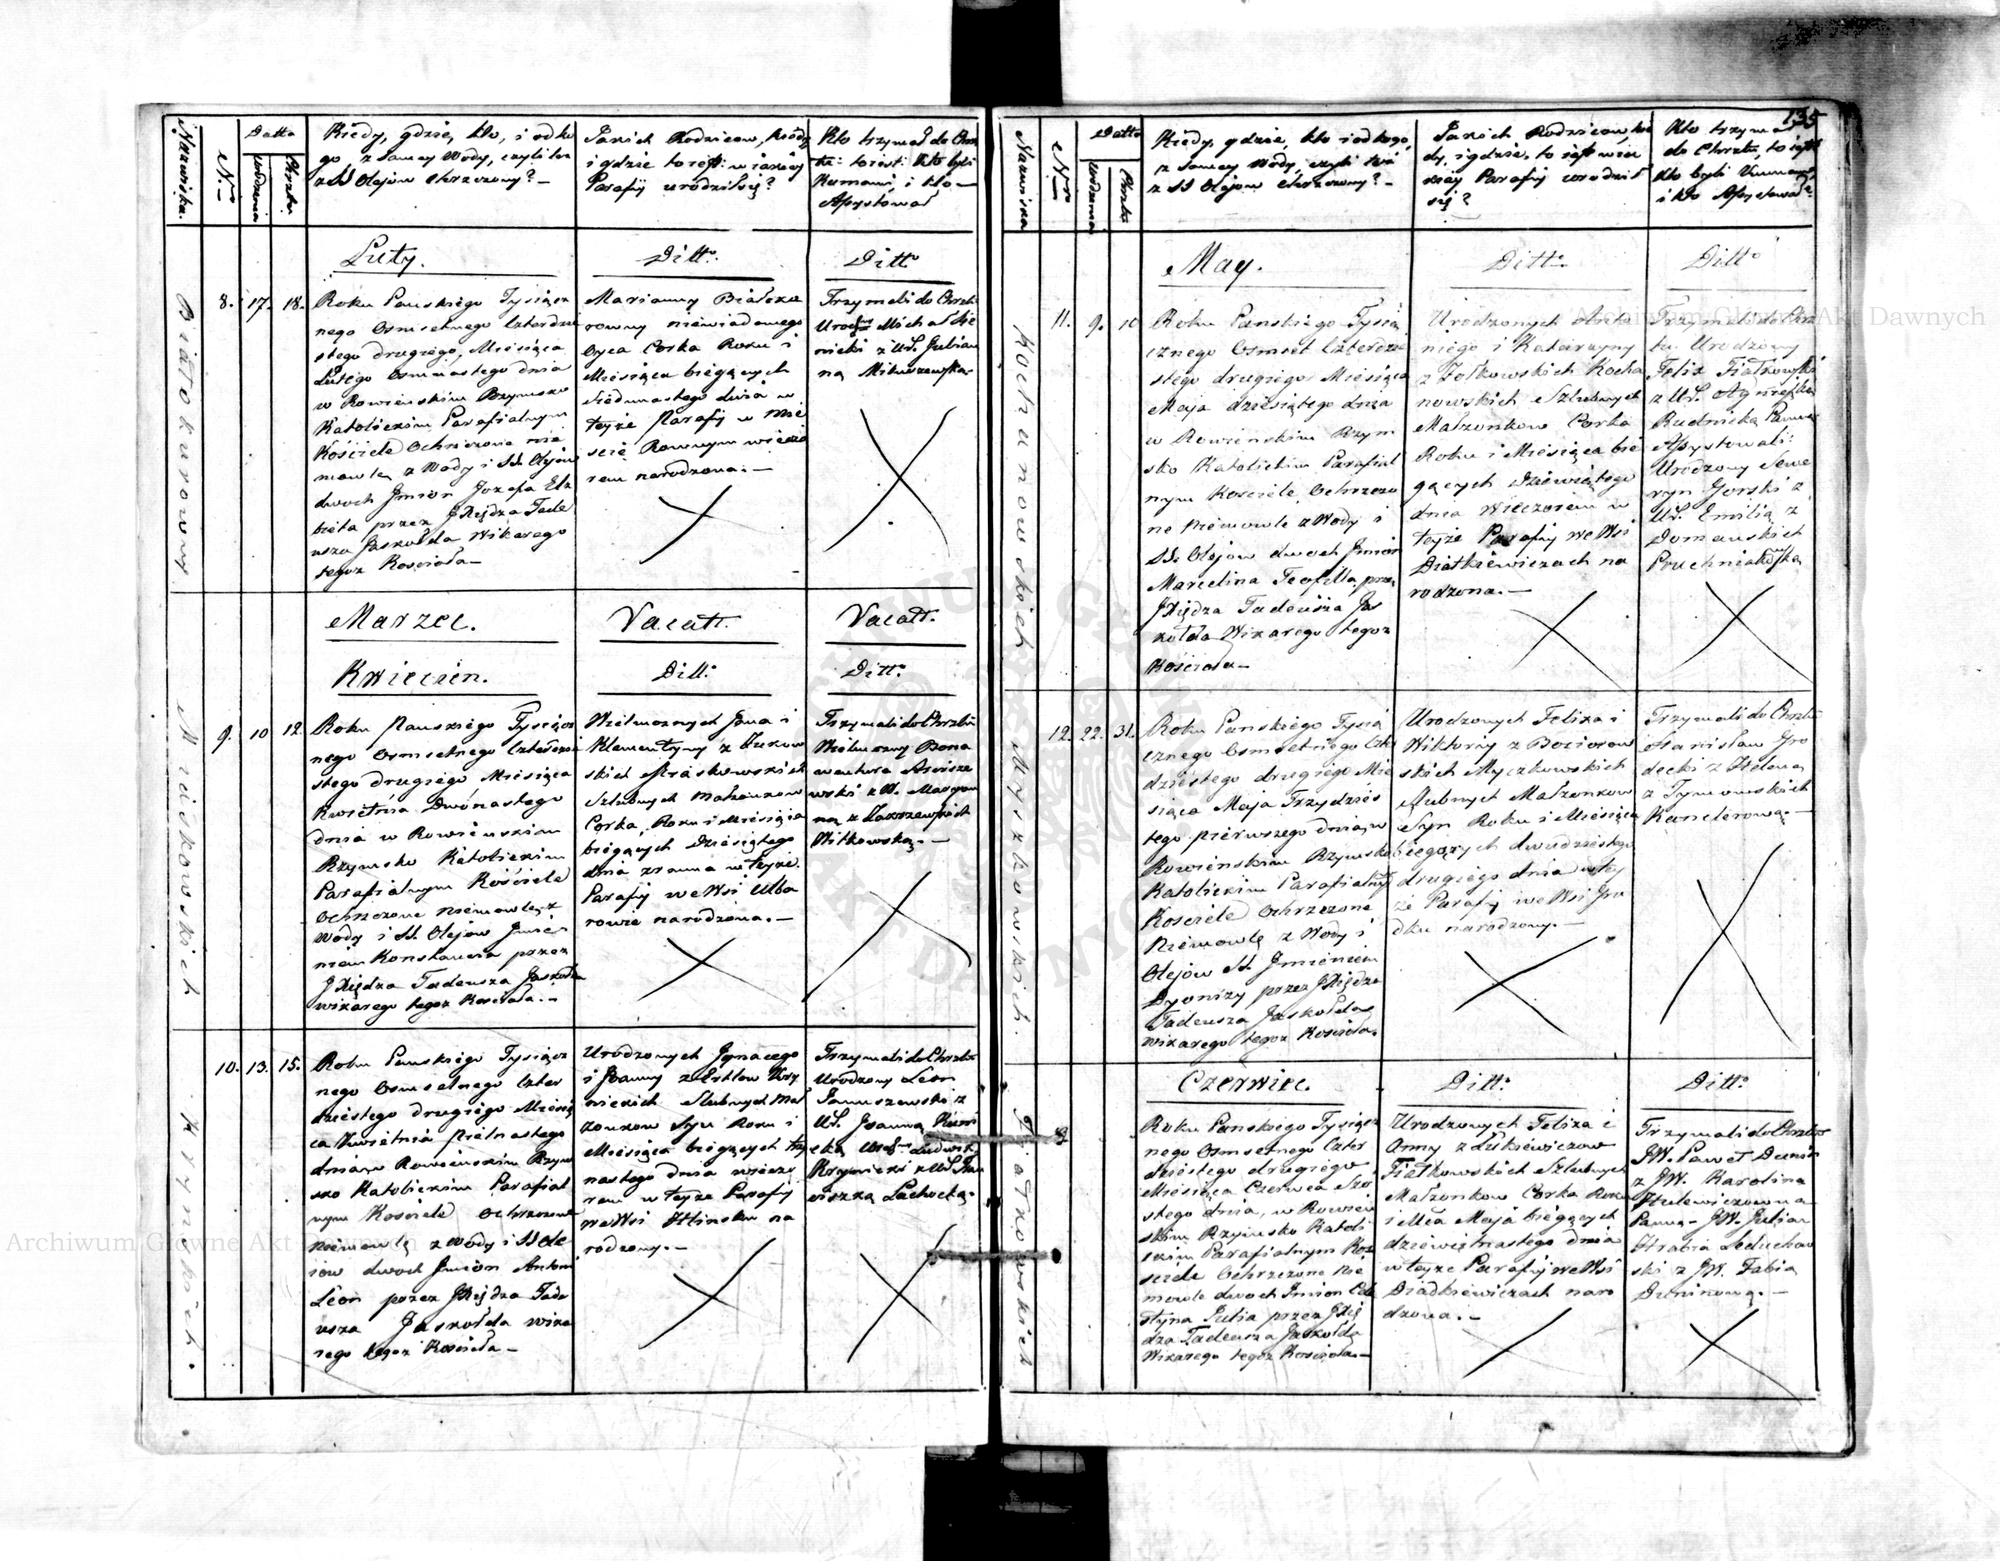 135
Nazwiska.
Nro
Datta
Urodzenia
Chrztu.
Kiedy, gdzie, kto, i odko
go, z samey Wody, czyli też
z SS Olejow chrzczony? —
Jakich Rodzicow, kiedy
i gdzie to iest: w iakiey
Parafij urodził się?
Kto trzymał do Chrz
tu: to iest: Kto byli
Kumami, i kto —
Asystował
Luty.
Ditto.
Ditto
Białokurowny
8. 17. 18.
Roku Pańskiego Tysiącz
nego Osmsetnego Czterdzie
stego drugiego, Miesiąca
Lutego Osmnastego dnia
w Rowieńskim Rzymsko
Katolickim Parafialnym
Kościele Ochrzczone nie
mowlę z Wody i SS. Olejow
dwoch Jmion Jozefa Elż
bieta przez JXiędza Tade
usza Jaskołda Wikarego
tegoż Kościoła —
Maryanny Białoku
rowny niewiadomego
Oyca Corka Roku i
Miesiąca bieżących
siedmnastego dnia w
teyże Parafij w Mie
ście Rownym wieczo
rem narodzona. —
Trzymali do Chrztu
Urodzony Michał
z Ur. Julian
ną
Marzec.
Vacatt.
Vacatt.
Kwiecień.
Ditto.
Ditto.
9. 10 12.
Roku Pańskiego Tysiącz
nego Osmsetnego Czterdzie
stego drugiego Miesiąca
Kwietnia Dwónastego
dnia w Rowieńskim
Rzymsko Katolickim
Parafialnym Kościele
Ochrzczone niemowlę z
Wody i SS. Olejow Jmie
niem Konstancia przez
JXiędza Tadeusza Jaskołda
wikarego tegoż Kościoła. —
Wielmożnych Jana i
Klementyny z Żukow
skich
Szlubnych Małżonkow
Corka, Roku i Miesiąca
bieżących Dziesiątego
dnia zrana w teyże
Parafij we Wsi
narodzona. —
Trzymali do Chrztu
Wielmożny Bona
wentura
z W. Maryan
ną z Zakrzewskich
Witkowską. —
Krynickich.
10. 13. 15.
Roku Pańskiego Tysiącz
nego Osmsetnego Czter
dziestego drugiego Miesią
ca Kwietnia Piętnastego
dnia w Rowieńskim Rzym
sko Katolickim Parafial
nym Kościele Ochrzczone
niemowlę z Wody i SS Ole
iow dwoch Jmion Antoni
Leon przez JXiędza Tade
usza Jaskołda wika
rego tegoż Kościoła —
Urodzonych Jgnacego
i Joanny z Krzy
nickich Slubnych Mał
żonkow Syn Roku i
Miesiąca bieżących trzy
nastego dnia wieczo
rem w teyże Parafij
we Wsi Hlinsku na
rodzony. —
Trzymali do Chrztu
Urodzony Leon
Januszewski z
Ur. Joanną
Ludwik
Krynicki z Ur. Fran
ciszką Lachocką. —
Nazwiska
Nro
Datta
Urodzenia
Chrztu
Kiedy, gdzie, kto i od kogo,
z samey Wody, czyli też
z SS Olejow chrzczony? —
Jakich Rodzicow, kie
dy, i gdzie, to iest w iak
kiey Parafij urodził
się?
Kto trzymał
do Chrztu, to iest
kto byli Kumami,
i kto Asystował?
May.
Ditto.
Ditto
Kochanowskich
11. 9. 10
Roku Pańskiego Tysią
cznego Osmset Czterdzie
stego drugiego Miesiąca
Maja dziesiątego dnia
w Rowieńskim Rzym
sko Katolickim Parafial
nym Kościele, Ochrzczo
ne Niemowle z Wody i
SS. Olejow dwoch Jmion
Marcelina Teofilla przez
JXiędza Tadeusza Jas
kołda Wikarego tegoż
Kościoła —
Urodzonych
i Katarzyny
z Żołkowskich Kocha
nowskich Szlubnych
Małżonkow Corka
Roku i Miesiąca bie
żących Dziewiątego
dnia Wieczorem w
teyże Parafij we Wsi
Diatkiewiczach na
rodzona. —
Trzymali do Chrz
tu Urodzony
Felix Fiałkowski
z Ur. Agnieszką
Rudnicką Panną
Asystowali:
Urodzony Sewe
ryn Gorski z
Ur. Emilią z
Domańskich
Myszkowskich.
12. 22. 31.
Roku Pańskiego Tysią
cznego Osmsetnego Czter
dziestego drugiego Mie
siąca Maja Trzydzies
tego pierwszego dnia w
Rowieńskim Rzymsko
Katolickim Parafialnym
Kościele Ochrzczone
Niemowlę z Wody i
Olejow SS. Jmieniem
Dyonizy przez JXiędza
Tadeusza Jaskołda
wikarego tegoż Kościoła.
Urodzonych Felixa i
Wiktoryi z Boziorow
skich Myczkowskich
Slubnych Małżonkow
Syn Roku i Miesiąca
bieżących dwudziestego
drugiego dnia w tey
że Parafij we Wsi Gru
dku narodzony. —
Trzymali do Chrztu
Stanisław Gro
decki z Heleną
z Tymowskich
Kanclerową. —
Czerwiec.
Ditto.
Ditto.
Fiałkowskich
Roku Pańskiego Tysiącz
nego Osmsetnego Czter
dziestego drugiego
Miesiąca Czerwca Szo
stego dnia, w Rowień
skim Rzymsko Katoli
ckim Parafialnym Koś
ciele Ochrzczone Nie
mowle dwoch Jmion Cele
styna Julia przez JXię
dza Tadeusza Jaskołda
Wikarego tegoż Kościoła. —
Urodzonych Felixa i
Anny z Lukiewiczow
Fiałkowskich Szlubnych
Małżonkow Corka Roku
i Mca Maja bieżących
dziewiętnastego dnia
w teyże Parafij we Wsi
Diadkiewiczach naro
dzona. —
Trzymali do Chrztu
JW. Paweł Dunin
z JW. Karoliną
Hulewiczowną
Panną — JW. Julian
Hrabia Leduchow
ski z JW. Fabią
Duninową. —
Archiwum Główne Akt Dawnych
Archiwum Główne Akt Dawnych